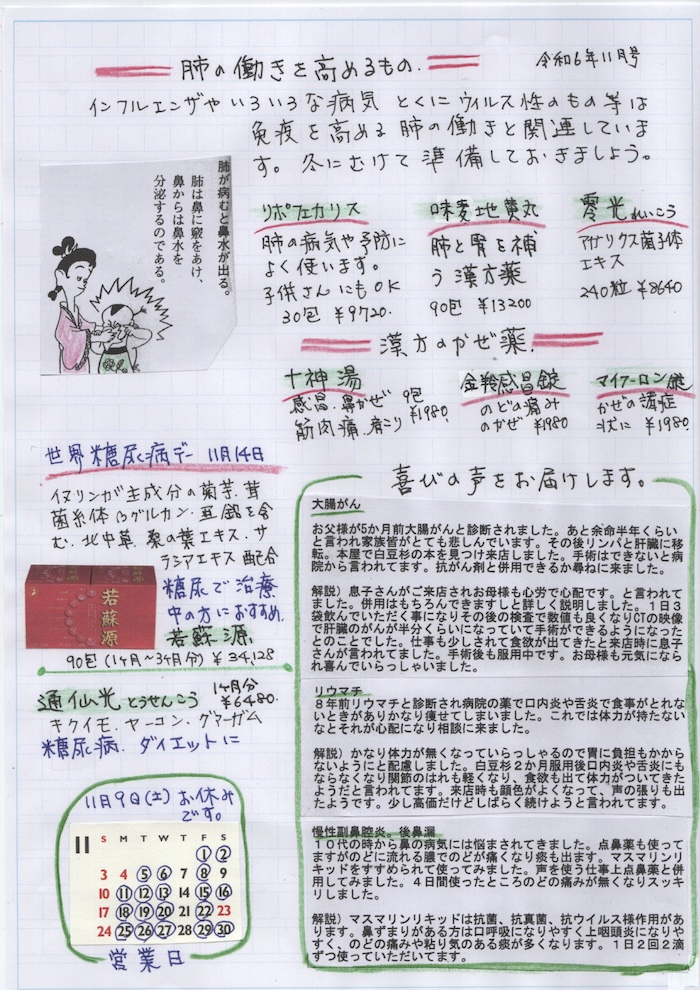 肺の働きを高めるもの.
令和6年11月号
インフルエンザやいろいろな病気 とくにウィルス性のもの等は
免疫を高める肺の働きと関連していま
す。冬にむけて準備しておきましょう。
肺が病むと鼻水が出る。
肺は鼻に竅をあけ、
鼻からは鼻水を
分泌するのである。
リポフェカリス
肺の病気や予防に
よく使います。
子供さんにもOK
30包 ¥9720.
味麦地黄丸
肺と腎を補
う漢方薬
90包 ¥13200
零光れいこう
アガリクス菌子体
エキス
240粒 ¥8640
漢方のかぜ薬.
十神湯
感冒.鼻かぜ 9包
筋肉痛.肩こり ¥1980.
金羚感冒錠
のどの痛み
のかぜ ¥1980
マイアーロン錠
かぜの諸症
状に ¥1980.
世界糖尿病デー 11月14日
イヌリンが主成分の菊芋.茸
菌糸体βグルカン.亜鉛を含
む.北虫草 桑の葉エキス.サ
ラシアエキス 配合
若蘇源
糖尿で治療
中の方におすすめ.
若蘇源
90包 (1ヶ月〜3ヶ月分) ¥34,128
通仙光とうせんこう 1ヶ月分
¥6480.
キクイモ.ヤーコン.グァーガム
糖尿病.ダイエットに
11月9日(土) お休み
です。
11 S M T W T F S
1 2
3 4 5 6 7 8 9
10 11 12 13 14 15 16
17 18 19 20 21 22 23
24 25 26 27 28 29 30
営業日
喜びの声をお届けします。
大腸がん
お父様が5か月前大腸がんと診断されました。あと余命半年くらい
と言われ家族皆がとても悲しんでいます。その後リンパと肝臓に移
転。本屋で白豆杉の本を見つけ来店しました。手術はできないと病
院から言われてます。抗がん剤と併用できるか尋ねに来ました。
解説）息子さんがご来店されお母様も心労で心配です。と言われて
ました。併用はもちろんできますしと詳しく説明しました。1日3
袋飲んでいただく事になりその後の検査で数値も良くなりCTの映像
で肝臓のがんが半分くらいになっていて手術ができるようになった
とのことでした。仕事も少しされてて食欲が出てきたと来店時に息子
さんが言われてました。手術後も服用中です。お母様も元気になら
れ喜んでいらっしゃいました。
リウマチ
8年前リウマチと診断され病院の薬で口内炎や舌炎で食事がとれな
いときがありかなり痩せてしまいました。これでは体力が持たない
なとそれが心配になり相談に来ました。
解説）かなり体力が無くなっていらっしゃるので胃に負担もかから
ないようにと配慮しました。白豆杉2か月服用後口内炎や舌炎にも
ならなくなり関節のはれも軽くなり、食欲も出て体力がついてきた
ようだと言われてます。来店時も顔色がよくなって、声の張りも出
たようです。少し高価だけどしばらく続けようと言われてます。
慢性副鼻腔炎。後鼻漏
10代の時から鼻の病気には悩まされてきました。点鼻薬も使って
ますがのどに流れる膿でのどが痛くなり痰も出ます。マスマリンリ
キッドをすすめられて使ってみました。声を使う仕事上点鼻薬と併
用してみました。4日間使ったところのどの痛みが無くなりスッキ
リしました。
解説）マスマリンリキッドは抗菌、抗真菌、抗ウイルス様作用があ
ります。鼻ずまりがある方は口呼吸になりやすく上咽頭炎になりや
すく、のどの痛みや粘り気のある痰が多くなります。1日2回2滴
ずつ使っていただいてます。